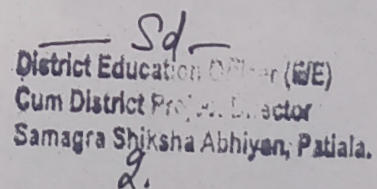 Sd-
District Education Officer (E/E)
Cum District Project Director
Samagra Shiksha Abhiyan, Patiala.